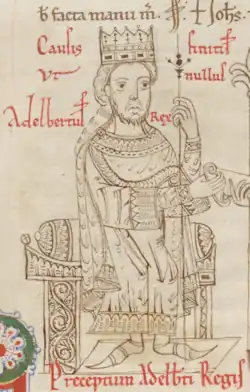 b facta manu m̄. ☩ Johs
Causis finitis
Ut nullus
Adelbertus
Rex
Preceptum Adelb̄ti Regis